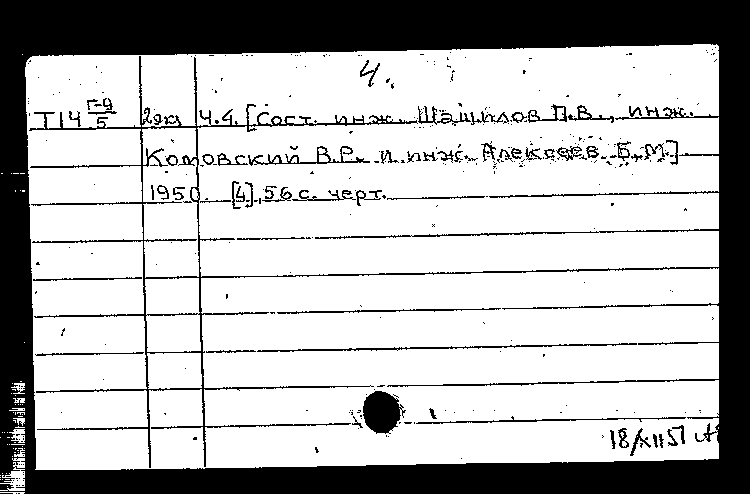 4.
Т14 Г-9/5 2экз Ч.4. [Сост. инж. Шашилов П.В., инж.
Котовский В.Р. и инж. Алексеев Б.М.]
1950. [4], 56 с. черт.
18/XII 51